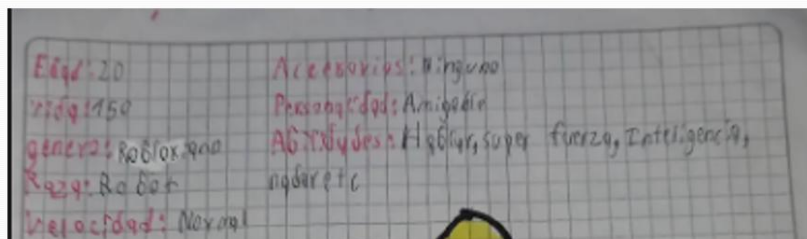 Edad: 20
Vida: 150
genero: Robloxiano
Raza: Robot
Velocidad: Normal
Accesorios: Ninguno
Personalidad: Amigable
Hablar, super fuerza, Inteligencia,
nadar etc